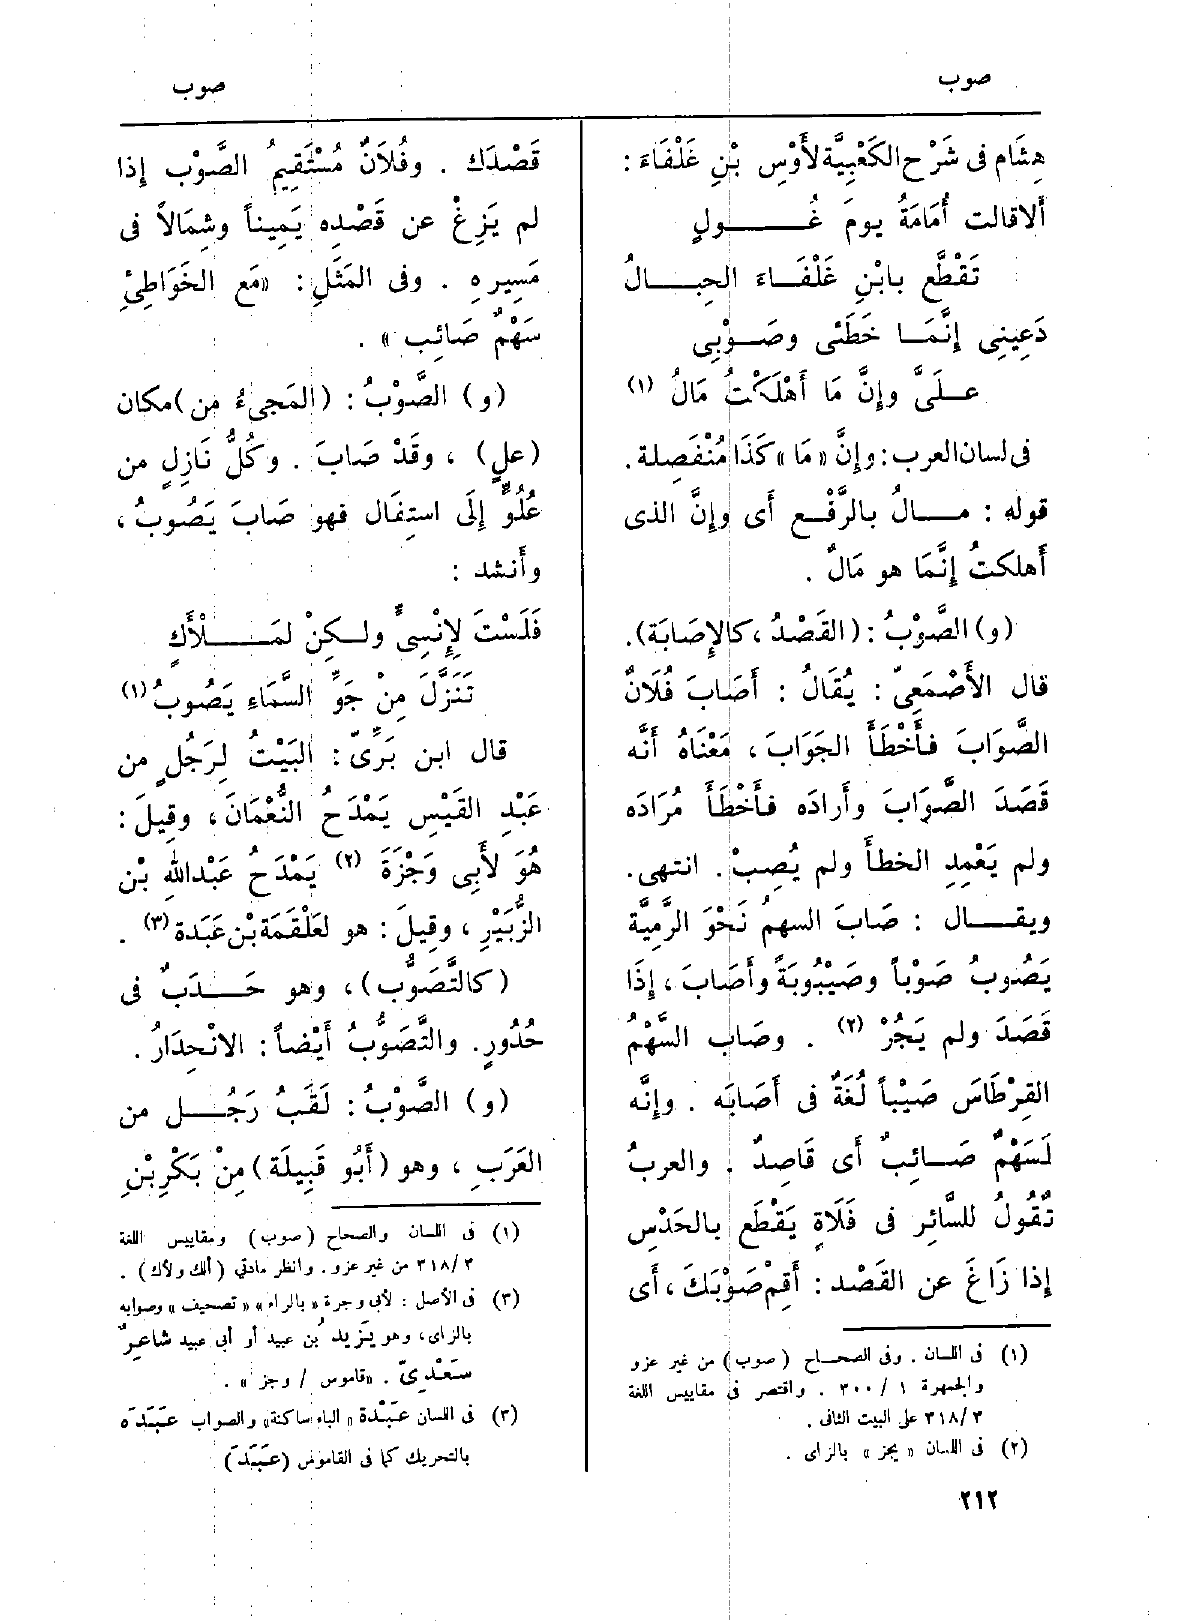 صوب
صوب
هِشَام فى شَرْح الكَعْبِيَّة لأَوْسِ بْنِ غَلْفَاءَ :
أَلا قالت أُمَامَةُ يومَ غُـــــولٍ
تَقَطَّع بابْنِ غَلْفَـاءَ الحِبـــالُ
دَعِينِى إِنَّمَـا خَطَئى وصَـوْبِى
عـلَىَّ وإِنَّ مَا أَهْلَكْتُ مَالُ (١)
فى لسان العرب : وإِنَّ « مَا » كَذَا مُنْفَصِلة .
قوله : مـــالُ بالرَّفْـع أَى وإِنَّ الذى
أَهلكتُ إِنَّمَا هو مَالٌ .
(و) الصَّوْبُ : (القَصْدُ ، كالإِصَابَة) .
قال الأَصْمَعِىّ : يُقَالُ : أَصَابَ فُلَانٌ
الصَّوَابَ فأَخْطَأَ الجَوَابَ ، مَعْنَاهُ أَنَّه
قَصَدَ الصَّوَابَ وأَرادَه فأَخْطَأَ مُرَادَه
ولم يَعْمِدِ الخطأَ ولم يُصِبْ . انتهى .
ويقـــال : صَابَ السهمُ نَحْوَ الرَّمِيَّة
يَصُوبُ صَوْباً وصَيْبُوبَةً وأَصَابَ ، إِذَا
قَصَدَ ولم يَجُرْ (٢) . وصَاب السَّهْمُ
القِرْطَاسَ صَيْباً لُغَةٌ فى أَصَابَه . وإِنَّه
لَسَهْمٌ صَـائِبٌ أَى قَاصِدٌ . والعربُ
تَقُولُ للسَّائِر فى فَلَاةٍ يَقْطَع بالحَدْسِ
إِذا زَاغَ عن القَصْد : أَقِمْ صَوْبَكَ ، أَى
(١) فى اللسان . وفى الصحـاح (صوب) من غير عزو
والجمهرة ١ / ٣٠٠ . واقتصر فى مقاييس اللغة
٣١٨/٣ على البيت الثانى .
(٢) فى اللسان « يجز » بالزاى .
قَصْدَك . وفُلَانٌ مُسْتَقِيمُ الصَّوْب إِذا
لم يَزِغْ عن قَصْدِه يَمِيناً وشِمَالاً فى
مَسِيرِه . وفى المَثَلِ : «مَع الخَوَاطِئِ
سَهْمٌ صَائِب » .
(و) الصَّوْبُ : (المَجىءُ مِن) مكان
(علٍ) ، وقَدْ صَابَ . وكُلُّ نَازِلٍ من
عُلُوٍّ إِلَى استِفَال فهو صَابَ يَصُوبُ ،
وأَنشد :
فَلَسْتَ لِإِنْسِىٍّ ولـكِنْ لمَـــــلْأَكٍ
تَنَزَّلَ مِنْ جَوِّ السَّمَاءِ يَصُوبُ (١)
قال ابن بَرِّىّ : البَيْتُ لِرَجُلٍ من
عَبْدِ القَيْسِ يَمْدَحُ النُّعْمَانَ ، وقِيلَ :
هُوَ لأَبِى وَجْزَةَ (٢) يَمْدَحُ عَبْدَ اللهِ بْن
الزُّبَيْرِ ، وقِيلَ : هو لعَلْقَمَة بْن عَبَدة (٣) .
(كالتَّصَوُّب) ، وهو حَـــدَبٌ فى
حُدُورٍ . والتَّصَوُّبُ أَيْضاً : الانْحِدَارُ .
(و) الصَّوْبُ : لَقَبُ رَجُـــل من
العَرَبِ ، وهو (أَبُو قَبِيلَة) مِنْ بَكْرِ بْنِ
(١) فى اللسان والصحاح (صوب) ومقاييس اللغة
٣١٨/٣ من غير عزو . وانظر مادتي (ألك ولأك) .
(٢) فى الأصل : لأبى وجرة « بالراء » « تصحيف » وصوابه
بالزاى ، وهو يَزيد بن عبيد أو أبى عبيد شاعِرٌ
سَعْدِىّ . «قاموس / وجز » .
(٣) فى اللسان عَبْدة « الباء ساكنة» والصواب عَبَدَه
بالتحريك كما فى القاموس (عَبَدَ)
٢١٢